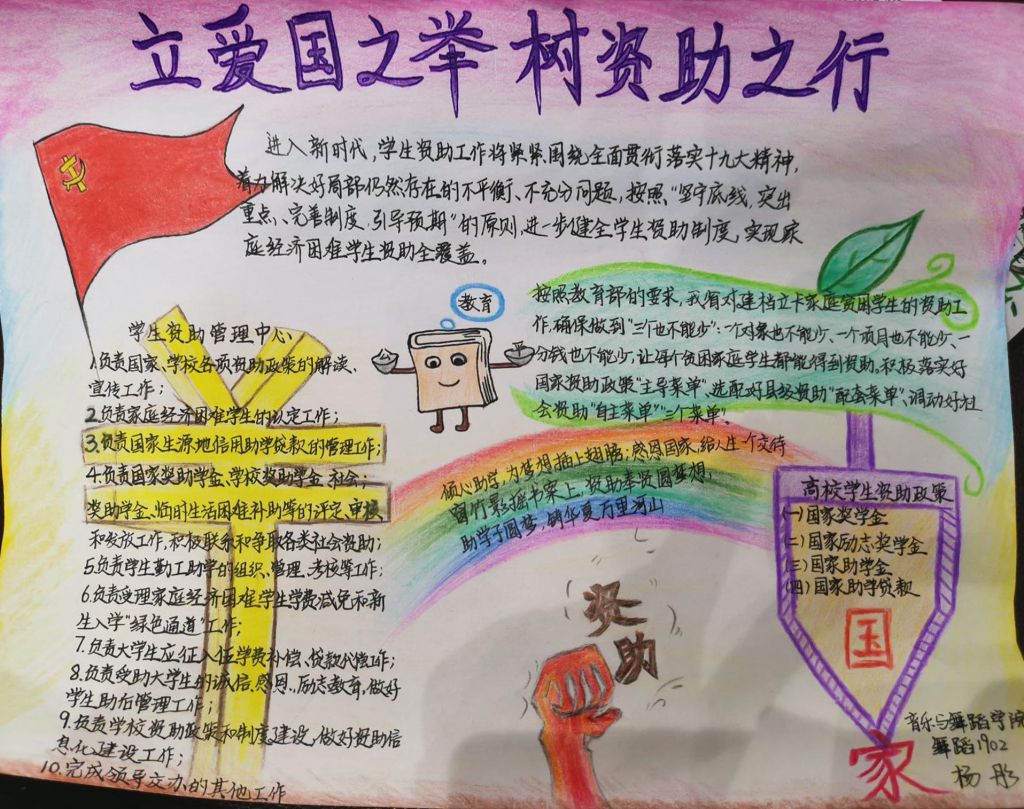 立爱国之举 树资助之行
进入新时代，学生资助工作将紧紧围绕全面贯彻落实十九大精神，
着力解决好局部仍然存在的不平衡、不充分问题，按照“坚守底线，突出
重点、完善制度、引导预期”的原则，进一步健全学生资助制度，实现家
庭经济困难学生资助全覆盖。
教育
按照教育部的要求，我省对建档立卡家庭贫困学生的资助工
作，确保做到“三个也不能少”：一个对象也不能少、一个项目也不能少、一
分钱也不能少，让每个贫困家庭学生都能得到资助。积极落实好
国家资助政策“主导菜单”、选配好县级资助“配套菜单”、调动好社
会资助“自主菜单”“三个菜单”。
学生资助管理中心
1.负责国家、学校各项资助政策的解读、
宣传工作；
2.负责家庭经济困难学生的认定工作；
3.负责国家生源地信用助学贷款的管理工作；
4.负责国家奖助学金、学校奖助学金、社会；
奖助学金、临时生活困难补助等的评定、审核
和发放工作，积极联系和争取各类社会资助；
5.负责学生勤工助学的组织、管理、考核等工作；
6.负责受理家庭经济困难学生学费减免和新
生入学“绿色通道”工作；
7.负责大学生应征入伍学费补偿、贷款代偿工作；
8.负责受助大学生的诚信、感恩、励志教育，做好
学生助后管理工作；
9.负责学校资助政策和制度建设，做好资助信
息化建设工作；
10.完成领导交办的其他工作
倾心助学，为梦想插上翅膀；感恩国家，给人生一个交待
窗竹影摇书案上，资助奉贤圆梦想，
助学子圆梦，铸华夏万里河山
资
助
高校学生资助政策
(一)国家奖学金
(二)国家励志奖学金
(三)国家助学金
(四)国家助学贷款
国
家
音乐与舞蹈学院
舞蹈1902
杨彤